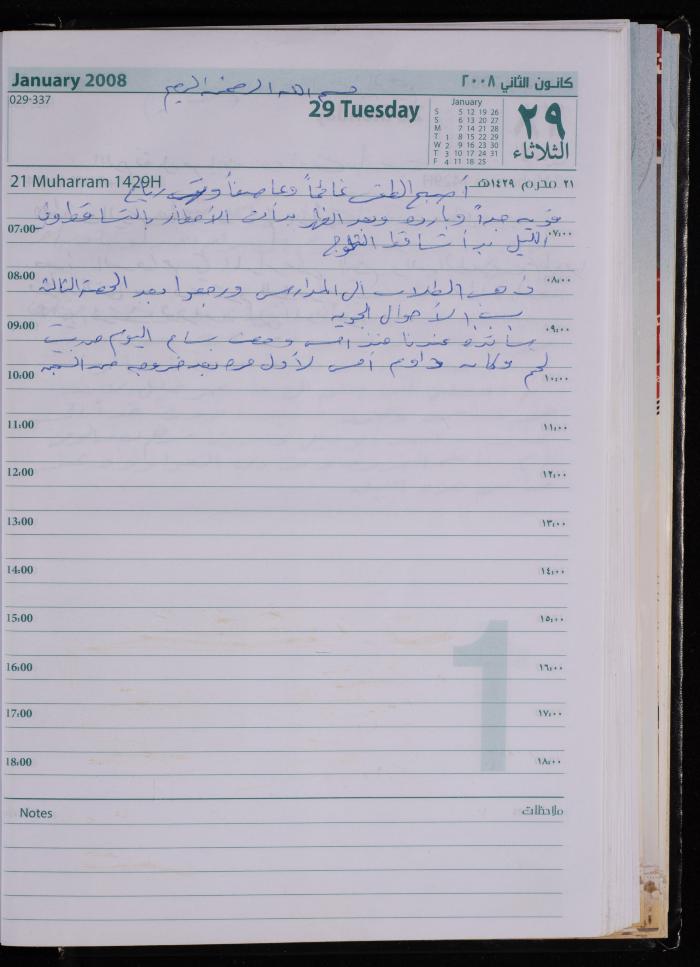 January 2008
كانون الثاني ٢٠٠٨
بسم الله الرحمن الرحيم
029-337
29 Tuesday
January
S 5 12 19 26
S 6 13 20 27
M 7 14 21 28
T 1 8 15 22 29
W 2 9 16 23 30
T 3 10 17 24 31
F 4 11 18 25
٢٩
الثلاثاء
21 Muharram 1429H
٢١ محرم ١٤٢٩هـ
أصبح الطقس غائماً وعاصفاً رياح
قويه جداً وبارده وبعد الظهر بدأت الأمطار بالتساقط وفي
07:00
٠٧:٠٠
الليل بدأ تساقط الثلوج
08:00
٠٨:٠٠
ذهب الطلاب الى المدارس ورجعوا بعد الحصة الثالثة
بسبب الأحوال الجويه
09:00
٠٩:٠٠
عندنا منذ امس بسام اليوم
لحم وكان داوم أمس لأول مره بعد خروجه من السجن
10:00
١٠:٠٠
11:00
١١:٠٠
12:00
١٢:٠٠
13:00
١٣:٠٠
14:00
١٤:٠٠
15:00
١٥:٠٠
16:00
١٦:٠٠
17:00
١٧:٠٠
18:00
١٨:٠٠
1
Notes
ملاحظات